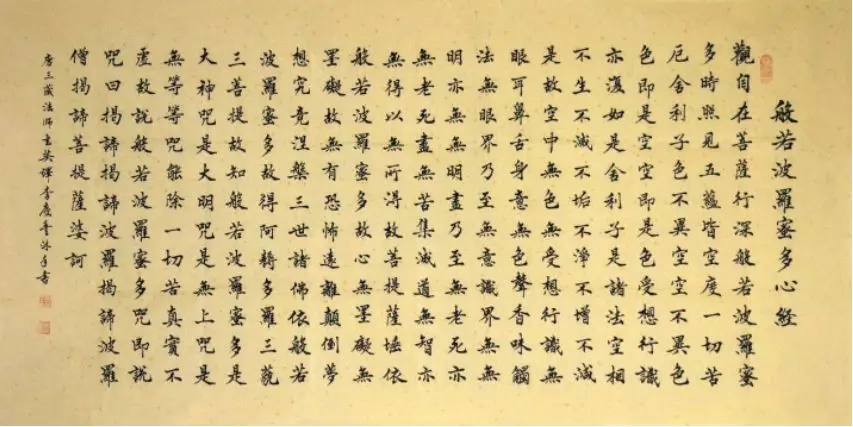 般若波羅蜜多心經
觀自在菩薩行深般若波羅蜜
多時照見五蘊皆空度一切苦
厄舍利子色不異空空不異色
色即是空空即是色受想行識
亦復如是舍利子是諸法空相
不生不滅不垢不淨不增不減
是故空中無色無受想行識無
眼耳鼻舌身意無色聲香味觸
法無眼界乃至無意識界無無
明亦無無明盡乃至無老死亦
無老死盡無苦集滅道無智亦
無得以無所得故菩提薩埵依
般若波羅蜜多故心無罣礙無
罣礙故無有恐怖遠離顛倒夢
想究竟涅槃三世諸佛依般若
波羅蜜多故得阿耨多羅三藐
三菩提故知般若波羅蜜多是
大神咒是大明咒是無上咒是
無等等咒能除一切苦真實不
虛故說般若波羅蜜多咒即說
咒曰揭諦揭諦波羅揭諦波羅
僧揭諦菩提薩婆訶
唐三藏法師玄奘譯李慶沐手書